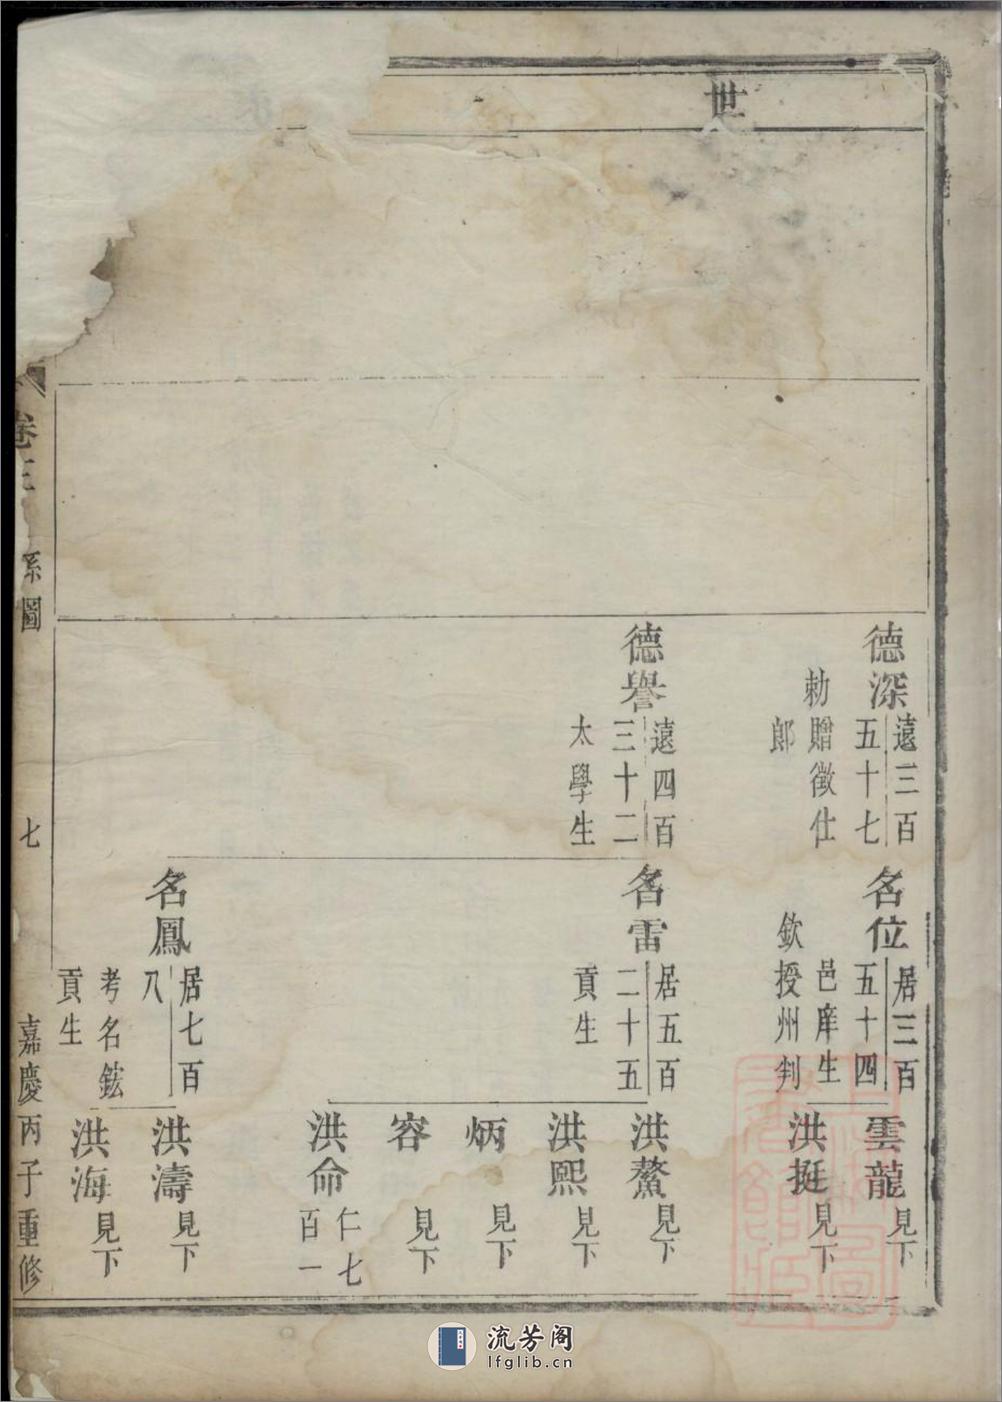 世
德深
遠三百
五十七
勅贈徵仕
郎
德譽
遠四百
三十二
太學生
名位
居三百
五十四
邑庠生
欽授州判
名雷
居五百
二十五
貢生
名鳳
居七百
八
考名鋐
貢生
雲龍
見下
洪挺
見下
洪鰲
見下
洪熙
見下
炳
見下
容
見下
洪命
仁七
百一
洪濤
見下
洪海
見下
卷三
系圖
七
嘉慶丙子重修
流芳阁
lfglib.cn